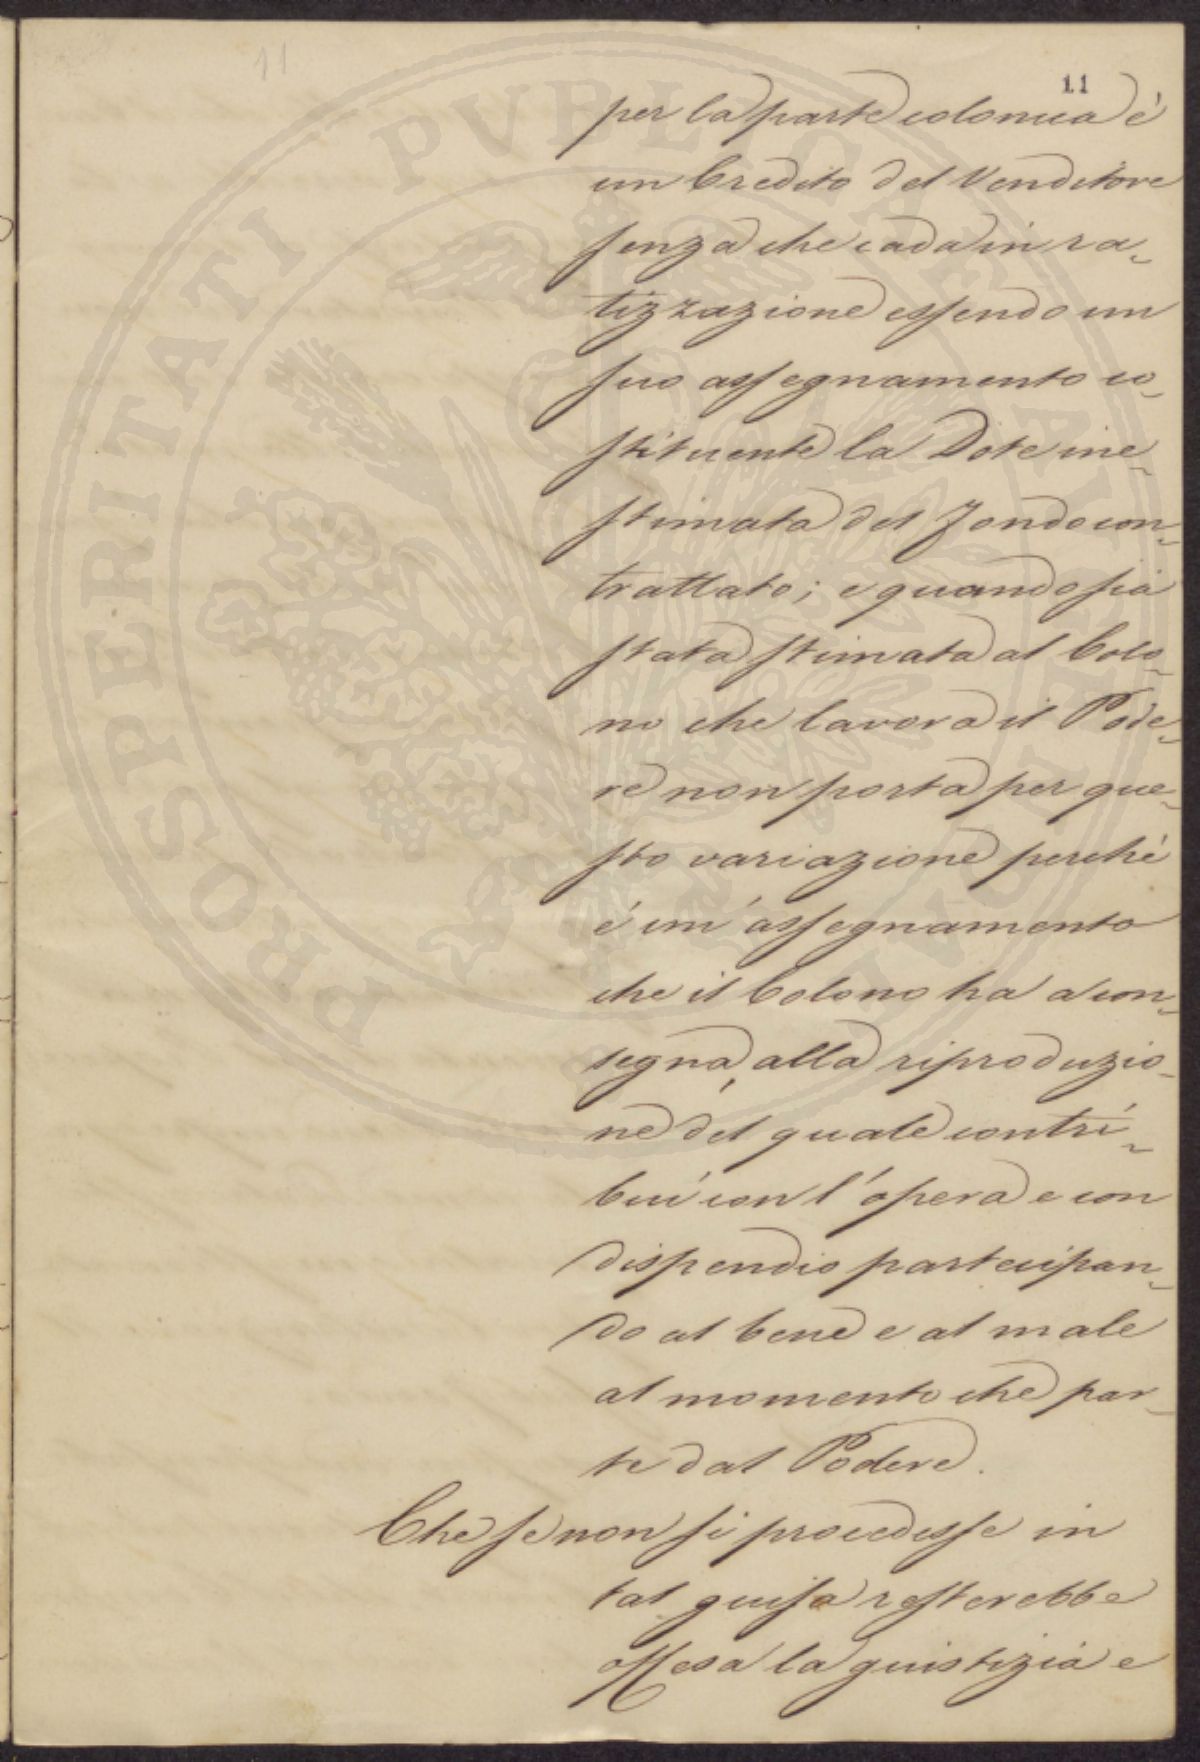 11
11
per la parte colonica è
un Credito del Venditore
senza che cada in ra-
tizzazione essendo un
suo assegnamento co-
stituente la Dote ine-
stimata del Fondo con-
trattato; e quando sia
stata stimata al Colo-
no che lavora il Pode-
re non porta per que-
sto variazione perché
é un' assegnamento
che il Colono ha a con-
segna, alla riproduzio-
ne del quale contri-
buí con l'opera e con
dispendio partecipan-
do al bene e al male
al momento che par-
te dal Podere.
Che se non si procedesse in
tal guisa resterebbe
offesa la giustizia e
PROSPERITATI PVBLICAE AVGENDAE